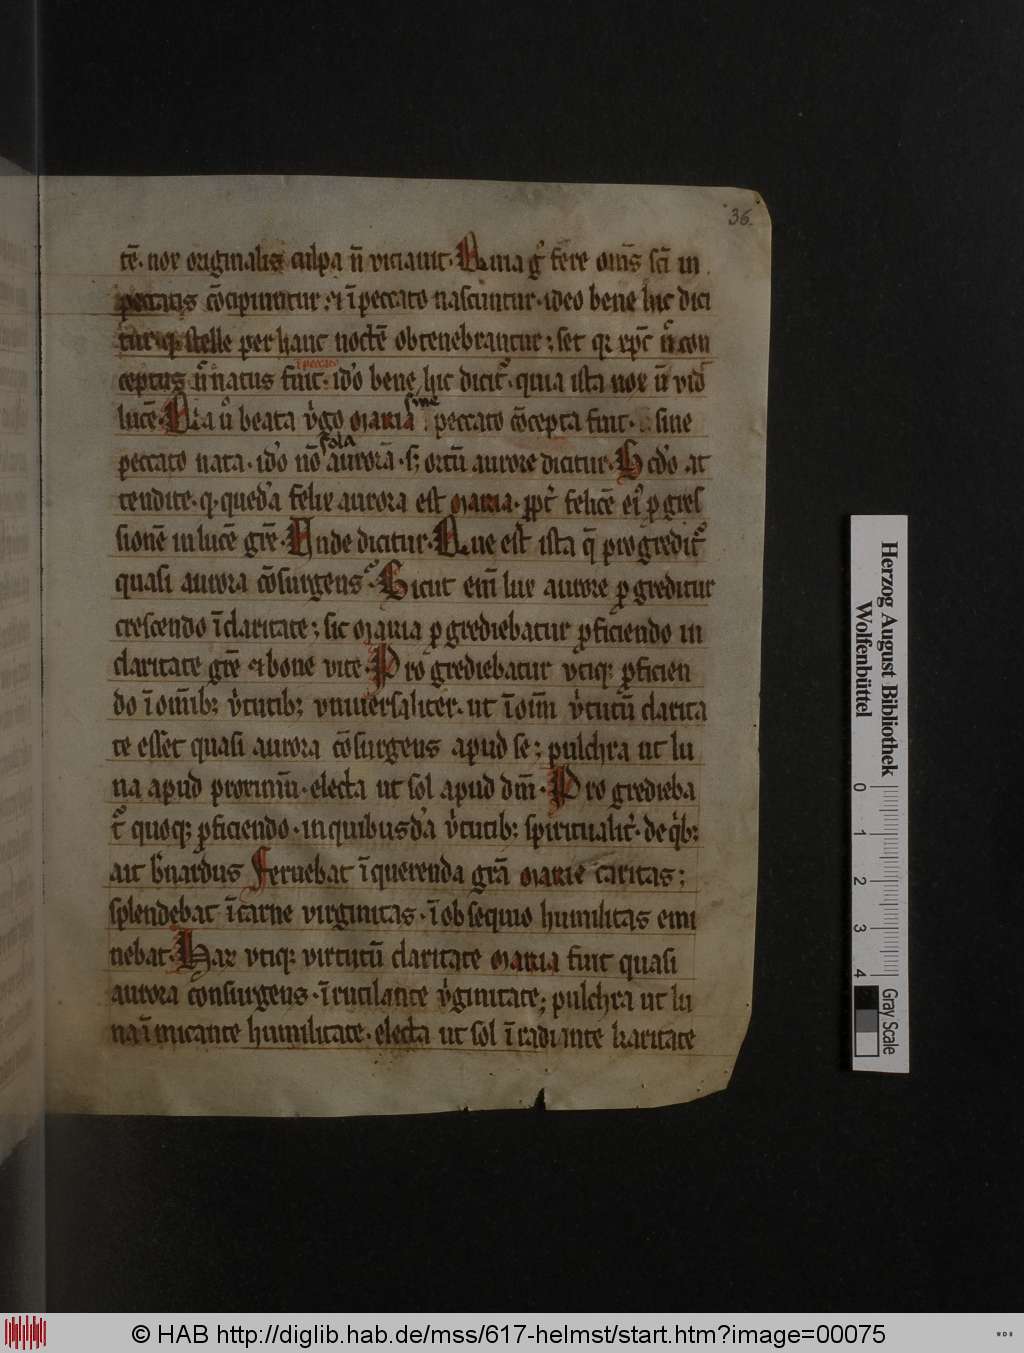 36.
tē. nox originalis culpa n̄ viciauit. Quia gͦ fere om̄s sc̄i in
peccatis ꝯ̄cipiuntur. ⁊ ī peccato nascuntur. ideo bene hic dici
tur qꝫ stelle per hanc noctē obtenebrantur; set qꝛ xp̄c n̄ con
ī peccato
ceptus n̄ natus fuit. id'o bene hic dicit᷑. quia ista nox n̄ vid
sine
lucē. Ista u̾ beata v̾go maria peccato cōcepta fuit. sine
sola
peccato nata. id'o nō aurorā. sꝫ ortū aurore dicitur. Hcd'o at
tendite. qꝫ queda felix aurora est maria. ꝓpt̾ felicē ei᷒ ꝓgres
sionē in lucē gr̄e. Vnde dicitur. Que est ista q̄ progredit᷑
quasi aurora cōsurgens. Sicut em̄ lux aurore ꝓgreditur
crescendo ī claritate; sic maria ꝓgrediebatur ꝓficiendo in
claritate gr̄e ⁊ bone vite. Progrediebatur vtiqꝫ ꝓficien
do ī om̄ibꝫ v̾tutibꝫ vniuersaliter. ut ī om̄i v̾tutū clarita
te esset quasi aurora cōsurgens apud se; pulchra ut lu
na apud proximū. electa ut sol apud dm̄. Progredieba
t᷑ quoqꝫ ꝓficiendo. in quibusdā v̾tutibꝫ spiritualit̾. de qͥbꝫ
ait b̾nardus Feruebat ī querenda grā marie caritas;
splendebat ī carne virginitas. ī obsequio humilitas emi
nebat. Hax vtiqꝫ virtutū claritate maria fuit quasi
aurora consurgens. ī rutilante v̾ginitate; pulchra ut lu
na ī micante humilitate. electa ut sol ī radiante karitate
Herzog August Bibliothek
Wolfenbüttel
0 1 2 3 4
Gray Scale
© HAB http://diglib.hab.de/mss/617-helmst/start.htm?image=00075